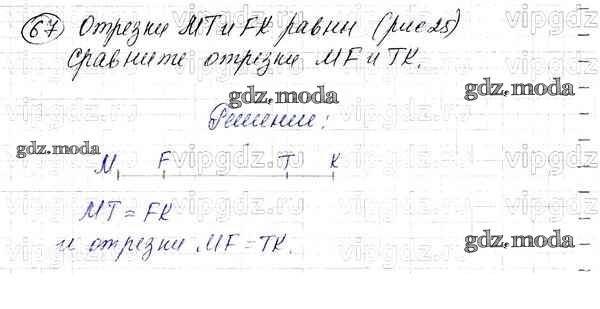 67 Отрезки MT и FK равны (рис 25)
Сравните отрезки MF и TK.
gdz.moda
gdz.moda
Решение:
gdz.moda
M F T K
MT = FK
и отрезки MF = TK.
gdz.moda